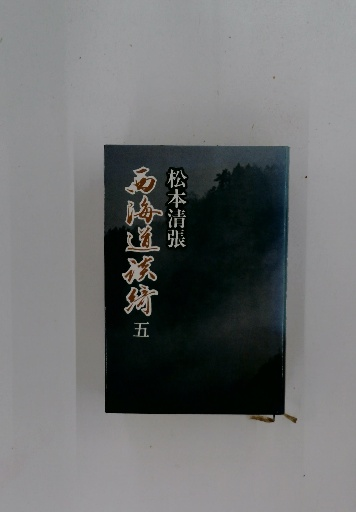 松本清張
西海道談綺
五